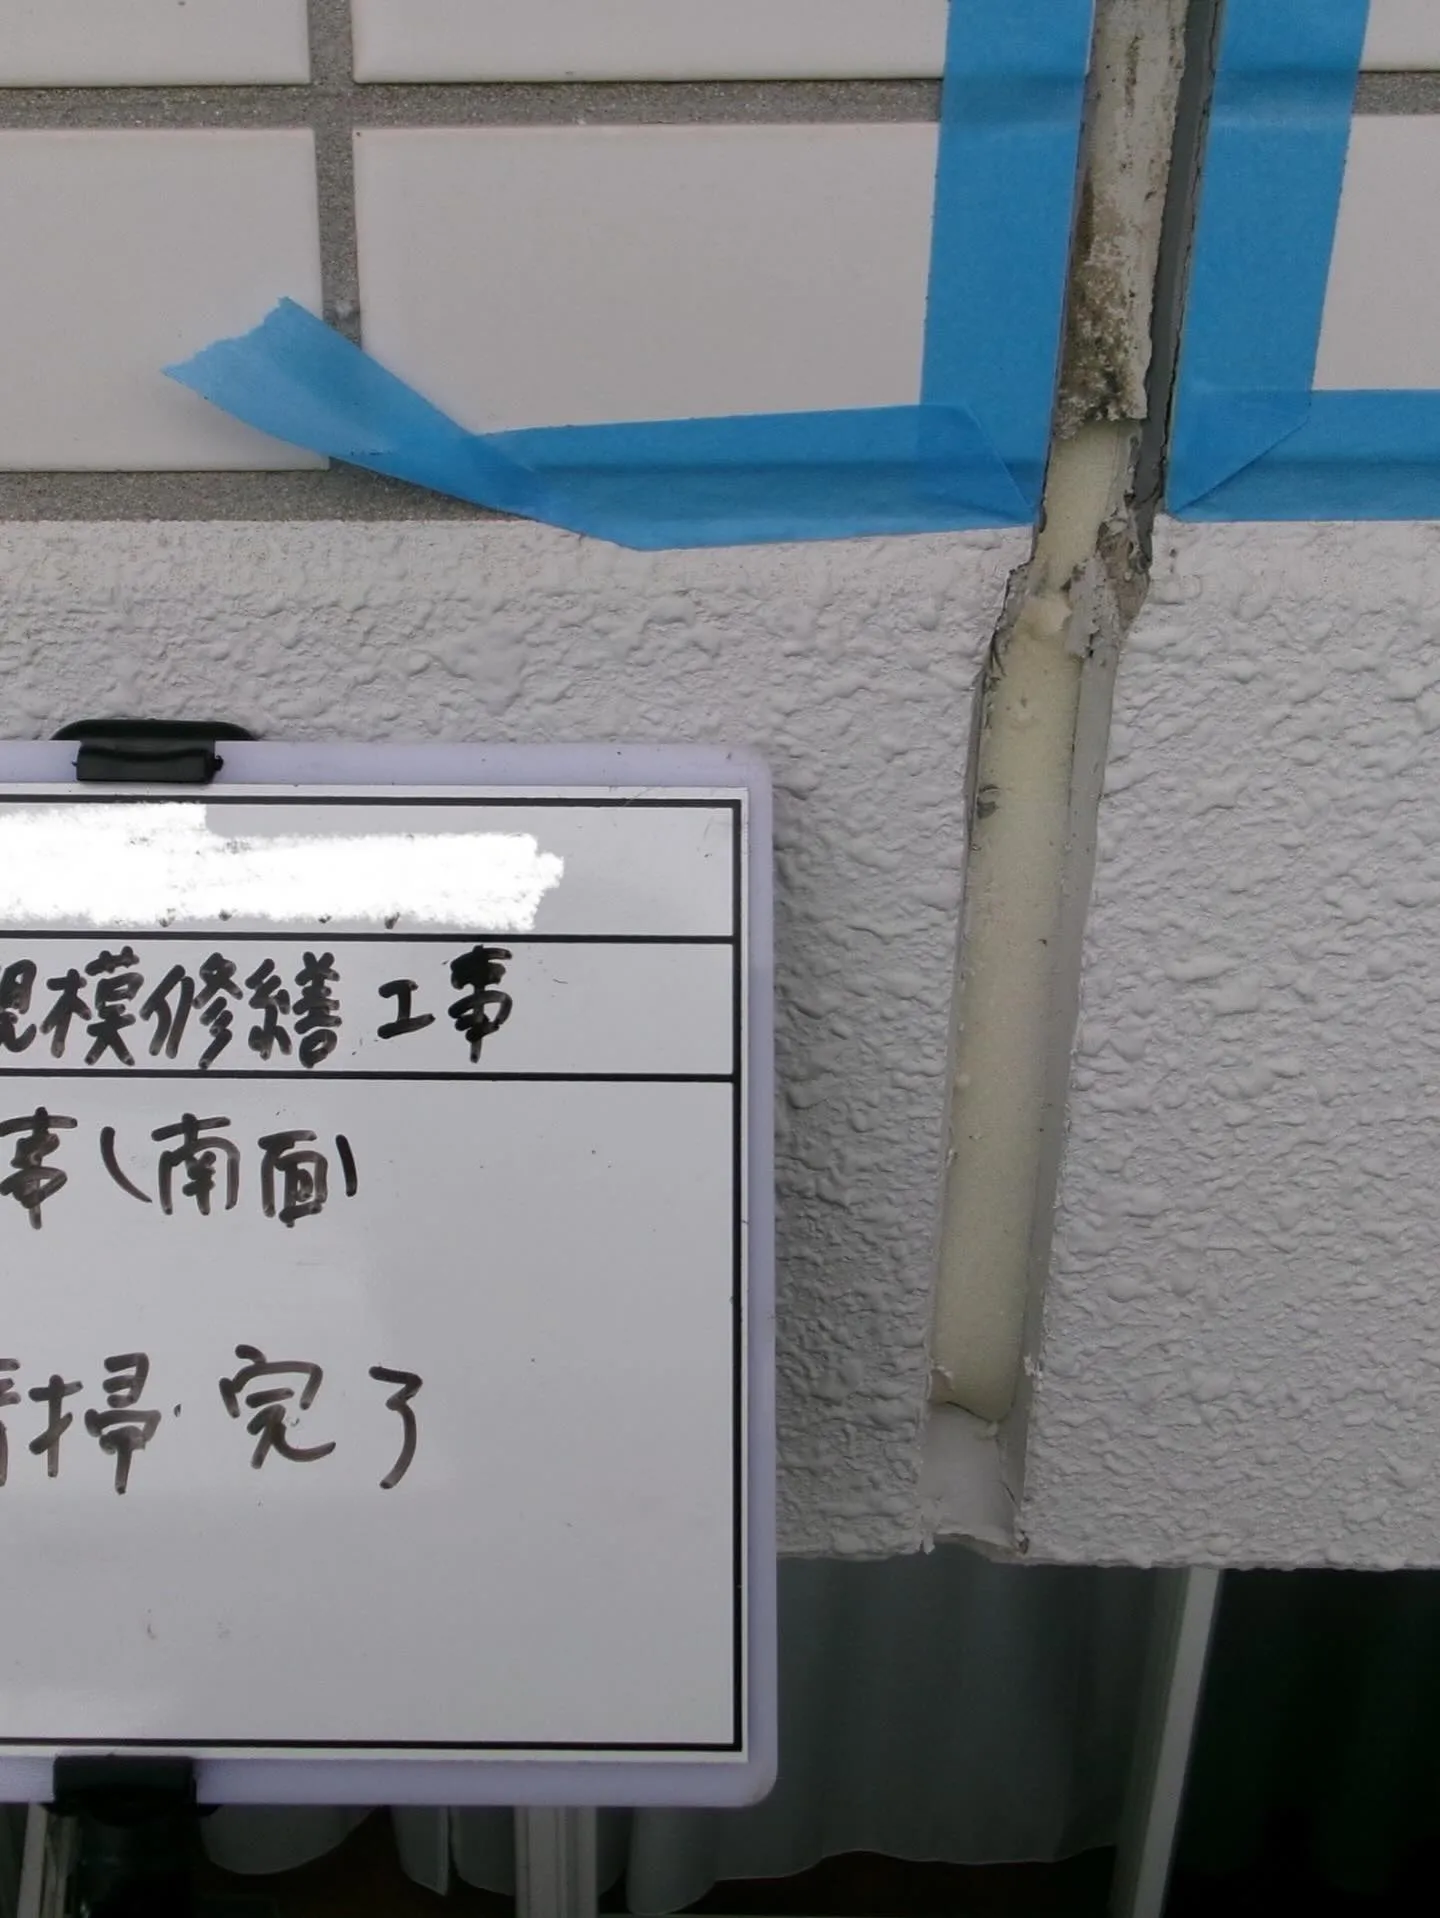 規模修繕工事
事(南面)
清掃完了